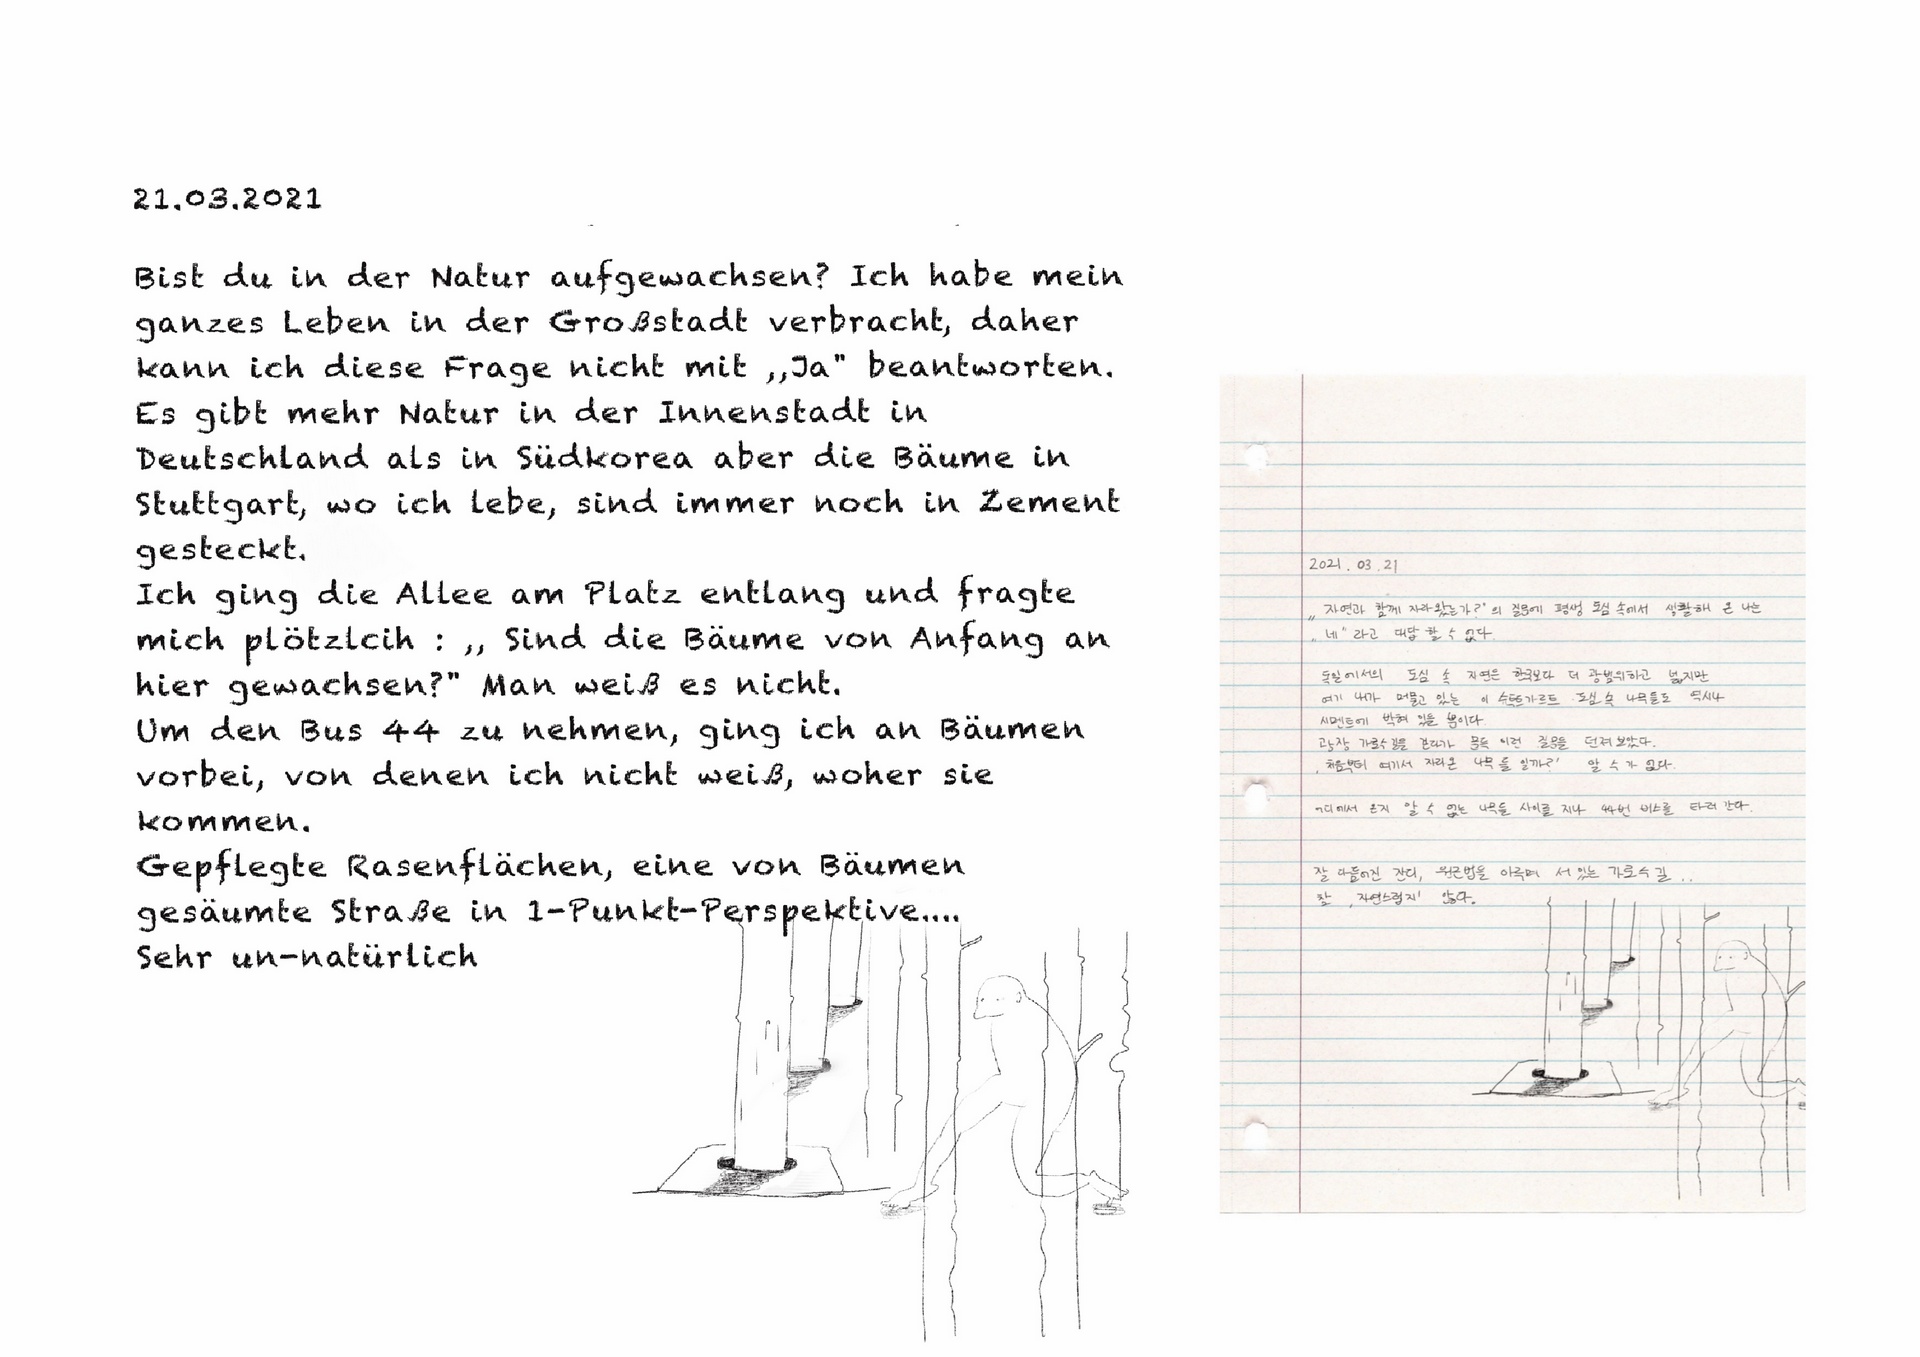 21.03.2021
Bist du in der Natur aufgewachsen? Ich habe mein
ganzes Leben in der Großstadt verbracht, daher
kann ich diese Frage nicht mit ,,Ja" beantworten.
Es gibt mehr Natur in der Innenstadt in
Deutschland als in Südkorea aber die Bäume in
Stuttgart, wo ich lebe, sind immer noch in Zement
gesteckt.
Ich ging die Allee am Platz entlang und fragte
mich plötzlcih : ,, Sind die Bäume von Anfang an
hier gewachsen?" Man weiß es nicht.
Um den Bus 44 zu nehmen, ging ich an Bäumen
vorbei, von denen ich nicht weiß, woher sie
kommen.
Gepflegte Rasenflächen, eine von Bäumen
gesäumte Straße in 1-Punkt-Perspektive....
Sehr un-natürlich
2021. 03. 21
„자연과 함께 자라왔는가?"의 질문에 평생 도심 속에서 생활해 온 나는
„네"라고 대답 할 수 없다.
독일에서의 도심 속 자연은 한국보다 더 광범위하고 넓지만
여기 내가 머물고 있는 이 슈투트가르트 도심 속 나무들도 역시나
시멘트에 박혀 있을 뿐이다.
광장 가로수길을 걷다가 문득 이런 질문을 던져보았다.
‚처음부터 여기서 자라온 나무 들 일까?' 알 수 가 없다.
어디에서 온지 알 수 없는 나무들 사이로 지나 44번 버스를 타러 간다.
잘 다듬어진 잔디, 원근법을 이루며 서 있는 가로수길..
참 ‚자연스럽지' 않다.